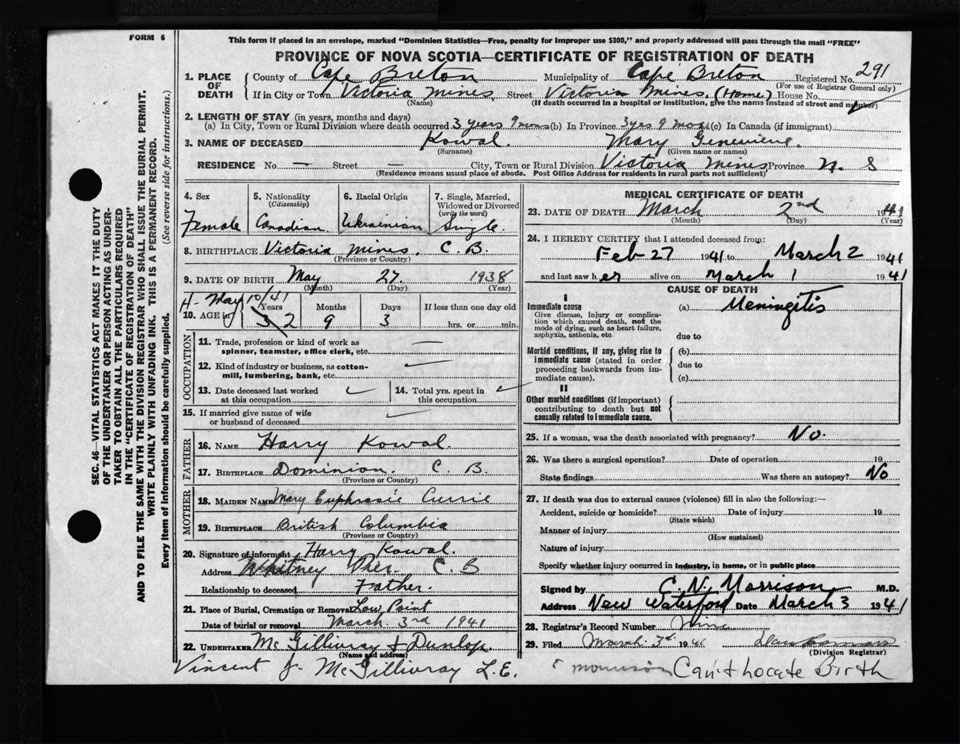 FORM 6
This form if placed in an envelope, marked "Dominion Statistics—Free, penalty for improper use $300," and properly addressed will pass through the mail "FREE"
PROVINCE OF NOVA SCOTIA—CERTIFICATE OF REGISTRATION OF DEATH
1. PLACE OF DEATH
County of Cape Breton Municipality of Cape Breton Registered No. 291
(For use of Registrar General only)
If in City or Town Victoria Mines Street Victoria Mines (Home) House No.
(Name) (If death occurred in a hospital or institution, give the name instead of street and number)
2. LENGTH OF STAY (in years, months and days)
(a) In City, Town or Rural Division where death occurred 3 years 9 mons (b) In Province 3 yrs 9 mos (c) In Canada (if immigrant)
3. NAME OF DECEASED Kowal. Mary Genevieve.
(Surname) (Given name or names)
RESIDENCE No. — Street — City, Town or Rural Division Victoria Mines Province N. S
(Residence means usual place of abode. Post Office Address for residents in rural parts not sufficient)
4. Sex
Female
5. Nationality (Citizenship)
Canadian
6. Racial Origin
Ukrainian
7. Single, Married, Widowed or Divorced (write the word)
Single
8. BIRTHPLACE Victoria Mines. C. B.
(Province or Country)
9. DATE OF BIRTH May 27. 1938
(Month) (Day) (Year)
H- May 10/41
10. AGE in Years Months Days If less than one day old
3 2 9 3 hrs. or min.
OCCUPATION
11. Trade, profession or kind of work as spinner, teamster, office clerk, etc.
12. Kind of industry or business, as cotton-mill, lumbering, bank, etc.
13. Date deceased last worked at this occupation
14. Total yrs. spent in this occupation
15. If married give name of wife or husband of deceased
FATHER
16. NAME Harry Kowal.
17. BIRTHPLACE Dominion. C. B
(Province or Country)
MOTHER
18. MAIDEN NAME Mary Euphrasie Currie
19. BIRTHPLACE British Columbia
(Province or Country)
20. Signature of informant Harry Kowal.
Address Whitney Pier. C. B
Relationship to deceased Father.
21. Place of Burial, Cremation or Removal Low Point
Date of burial or removal March 3rd 1941
22. UNDERTAKER McGillivray & Dunlop.
(Name and address)
Vincent J. McGillivray L.E.
MEDICAL CERTIFICATE OF DEATH
23. DATE OF DEATH March 2nd 1941
(Month) (Day) (Year)
24. I HEREBY CERTIFY that I attended deceased from:
Feb 27 1941 to March 2 1941
and last saw her alive on March 1 1941
CAUSE OF DEATH
I
Immediate cause
Give disease, injury or complication which caused death, not the mode of dying, such as heart failure, asphyxia, asthenia, etc.
(a) Meningitis
due to
Morbid conditions, if any, giving rise to immediate cause (stated in order proceeding backwards from immediate cause).
(b)
due to
(c)
II
Other morbid conditions (if important) contributing to death but not causally related to immediate cause.
25. If a woman, was the death associated with pregnancy? No.
26. Was there a surgical operation? Date of operation 19
State findings Was there an autopsy? No
27. If death was due to external causes (violence) fill in also the following:—
Accident, suicide or homicide? Date of injury 19
(State which)
Manner of injury
(How sustained)
Nature of injury
Specify whether injury occurred in industry, in home, or in public place
Signed by C. N. Morrison M.D.
Address New Waterford Date March 3 1941
28. Registrar's Record Number
29. Filed March 3rd 1941
(Division Registrar)
morrison Can't Locate Birth
SEC. 46—VITAL STATISTICS ACT MAKES IT THE DUTY
OF THE UNDERTAKER OR PERSON ACTING AS UNDER-
TAKER TO OBTAIN ALL THE PARTICULARS REQUIRED
IN THE "CERTIFICATE OF REGISTRATION OF DEATH"
AND TO FILE THE SAME WITH THE DIVISION REGISTRAR WHO SHALL ISSUE THE BURIAL PERMIT.
WRITE PLAINLY WITH UNFADING INK. THIS IS A PERMANENT RECORD.
Every item of information should be carefully supplied. (See reverse side for instructions.)